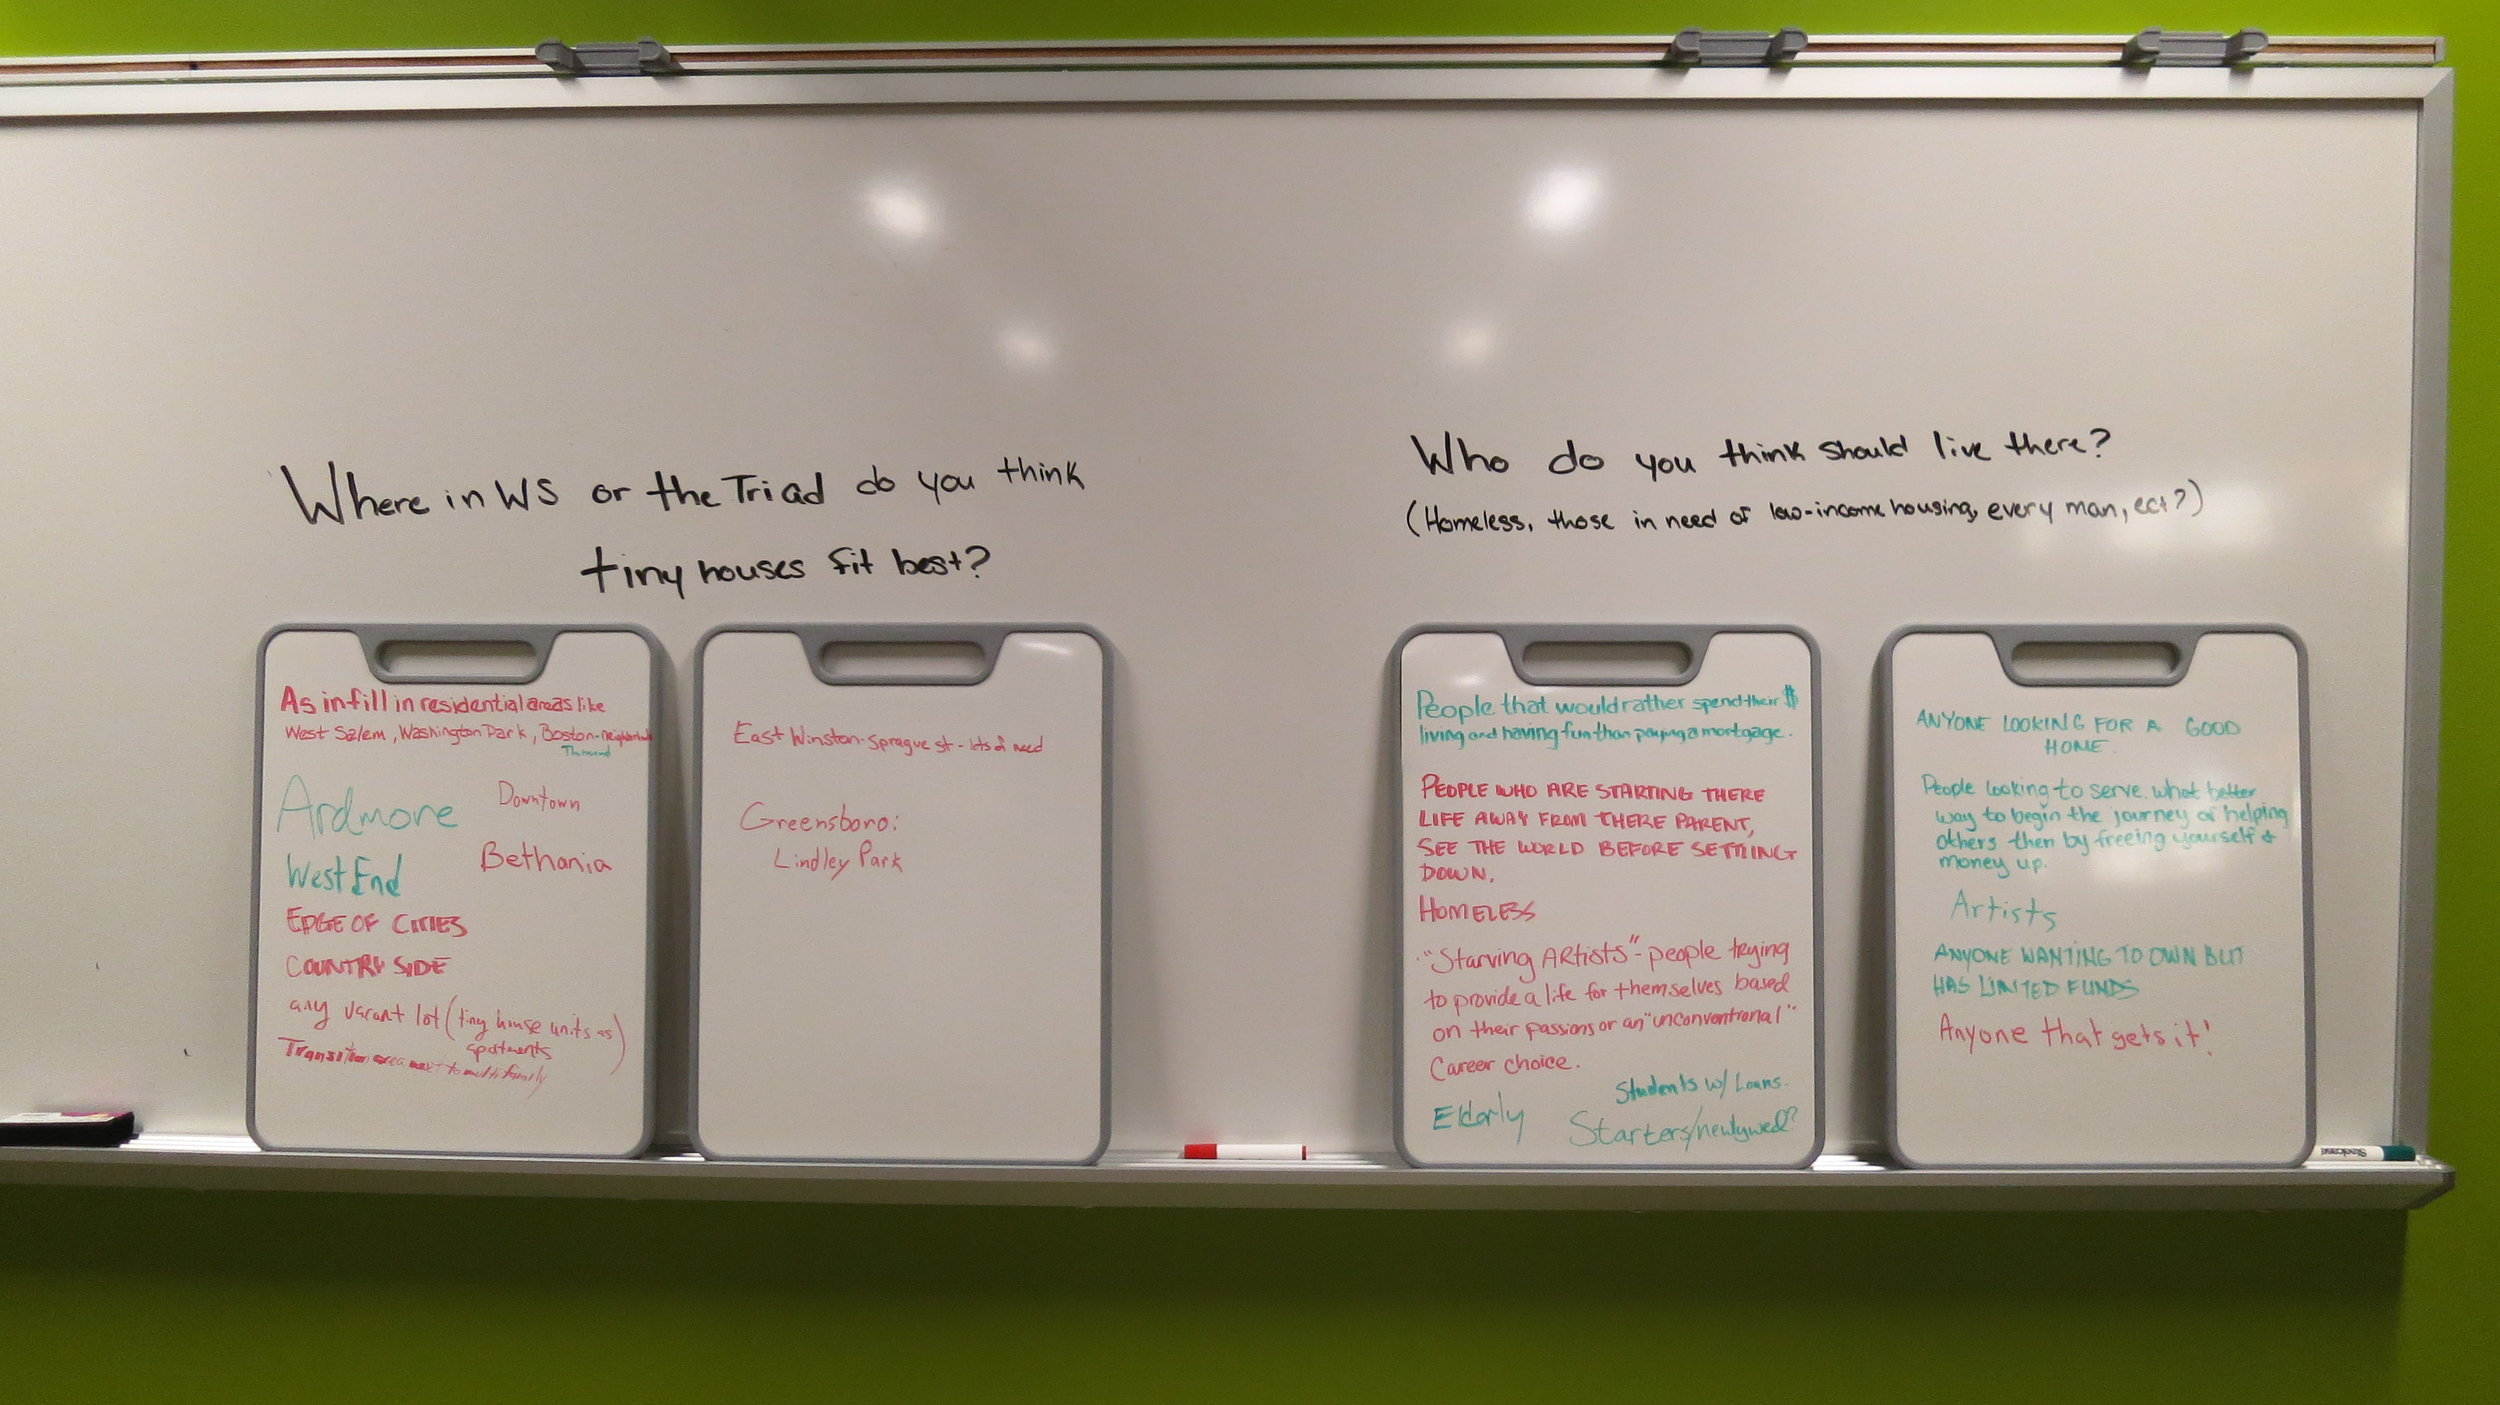 Where in WS or the Triad do you think
tiny houses fit best?
As infill in residential areas like
West Salem, Washington Park, Boston-
Ardmore
Downtown
West End
Bethania
EDGE OF CITIES
COUNTRY SIDE
any vacant lot (tiny house units as)
apartments
Transition area next to multifamily
East Winston-Sprague st - lots of need
Greensboro:
Lindley Park
Who do you think should live there?
(Homeless, those in need of low-income housing, every man, ect?)
People that would rather spend their $
living and having fun than paying a mortgage.
PEOPLE WHO ARE STARTING THERE
LIFE AWAY FROM THERE PARENT,
SEE THE WORLD BEFORE SETTING
DOWN.
HOMELESS
"Starving ARtists" - people trying
to provide a life for themselves based
on their passions or an "unconventional"
Career choice.
Students w/ Loans.
Elderly
Starters/newlywed?
ANYONE LOOKING FOR A GOOD
HOME.
People looking to serve. what better
way to begin the journey of helping
others then by freeing yourself &
money up.
Artists
ANYONE WANTING TO OWN BUT
HAS LIMITED FUNDS
Anyone that gets it!
Steelcase